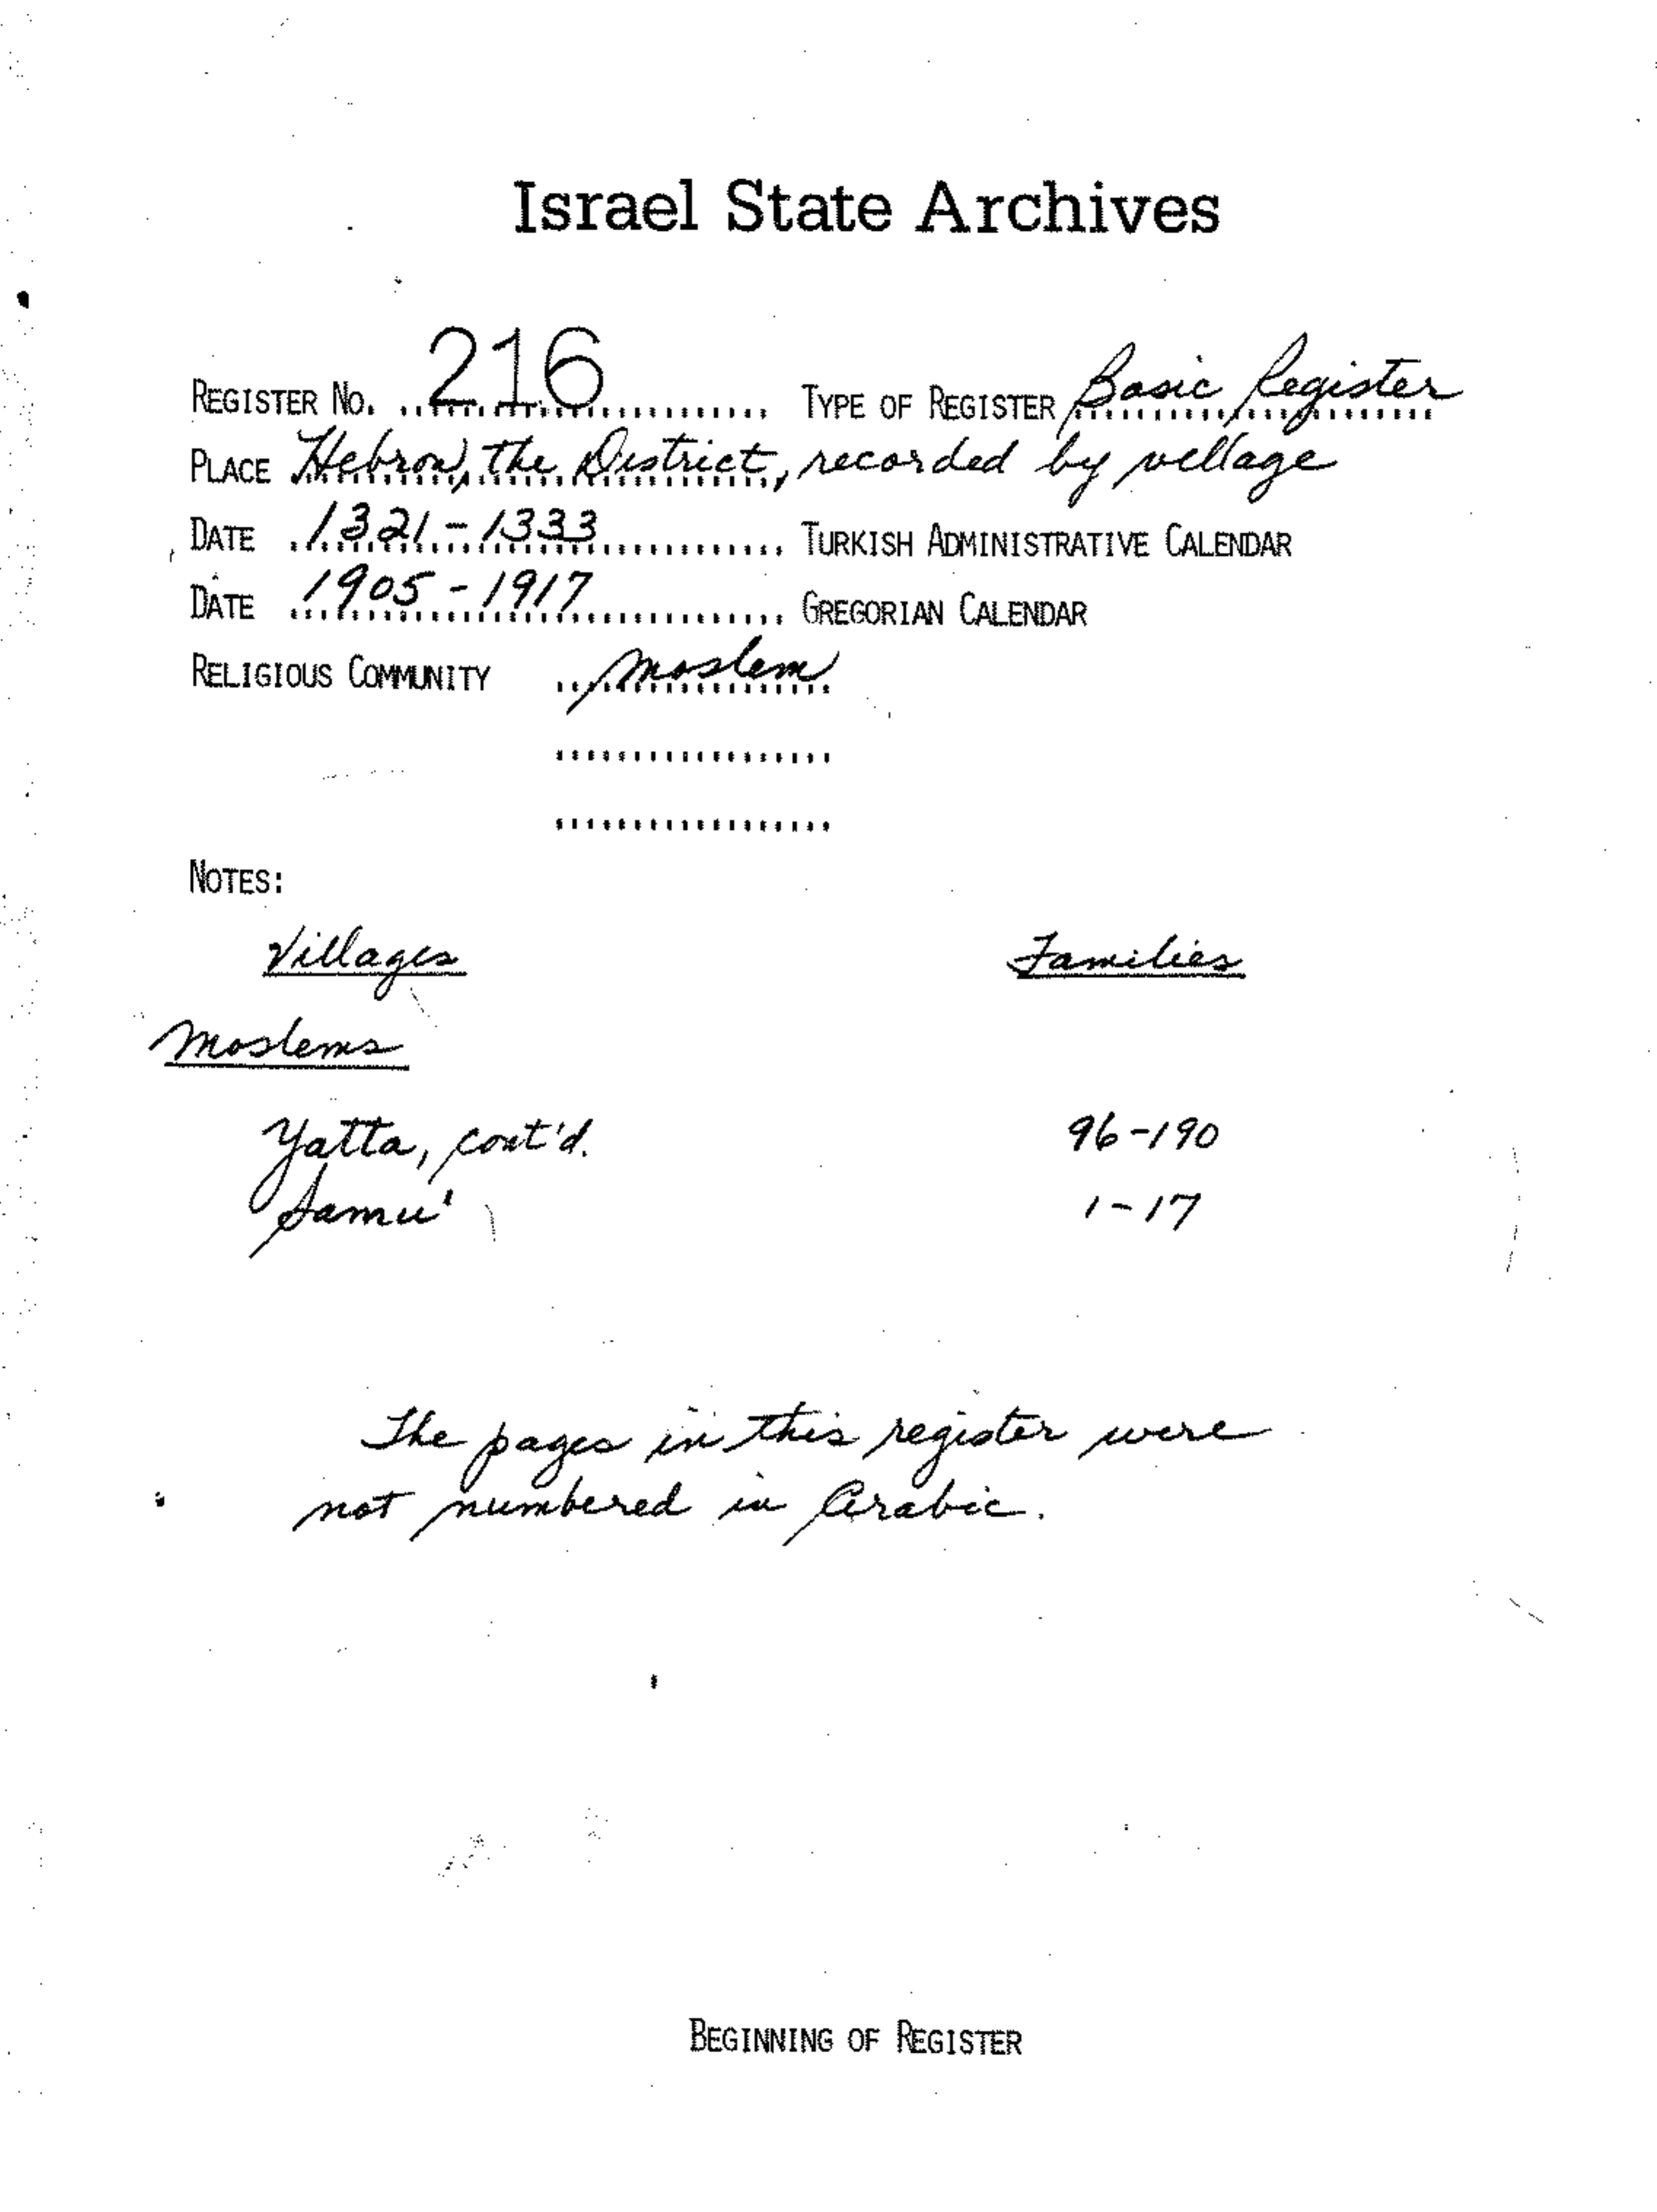 Israel State Archives
REGISTER NO. 216 TYPE OF REGISTER Basic Register
PLACE Hebron, the District, recorded by village
DATE 1321-1333 TURKISH ADMINISTRATIVE CALENDAR
DATE 1905-1917 GREGORIAN CALENDAR
RELIGIOUS COMMUNITY Moslem
NOTES:
Villages Families
Moslems
Yatta, cont'd. 96-190
Samu' 1-17
The pages in this register were
not numbered in Arabic.
BEGINNING OF REGISTER